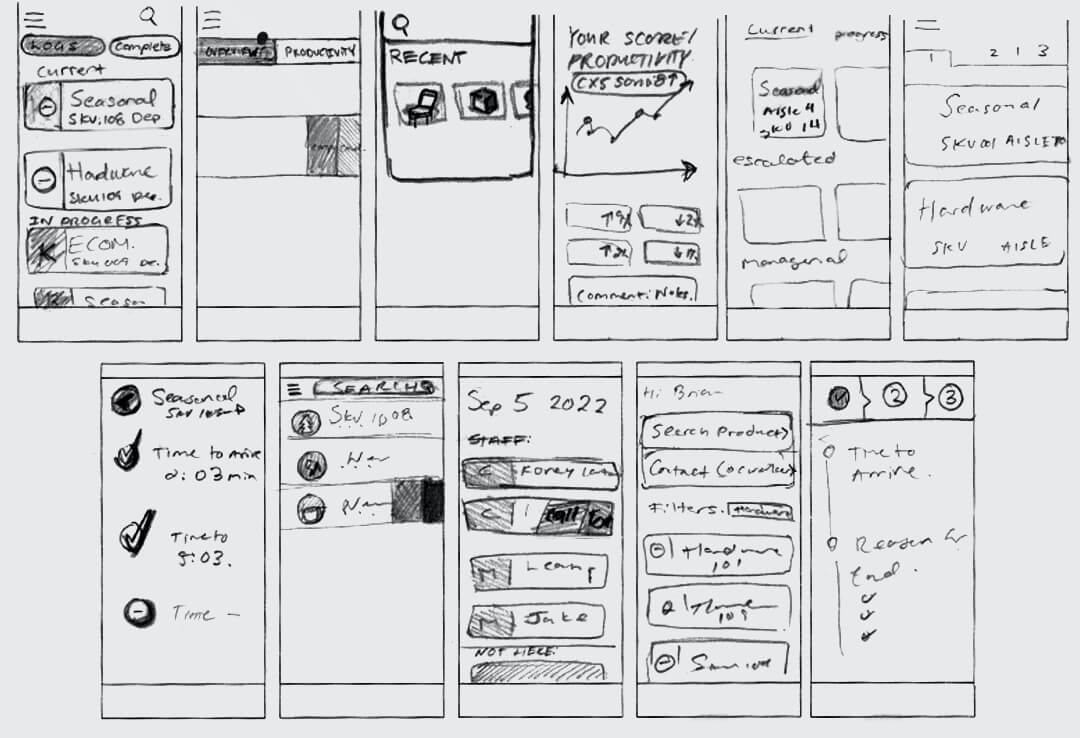 LOGS
Complete
Current
Seasonal
SKU:108 Dep
Hardware
SKU109 De.
IN PROGRESS
ECOM.
SKU 009 De.
Season
OVERVIEW
PRODUCTIVITY
RECENT
YOUR SCORE/
PRODUCTIVITY
↑9%
↓2%
↑2%
Comment: Notes.
Current
progress
Seasonal
Aisle 4
SKU 14
escalated
Managerial
1
2 1 3
Seasonal
SKU01 AISLE10
Hardware
SKU AISLE
Seasonal
Time to Arrive
2:03 min
Time to
9:03.
Time –
SEARCH
SKU 1008
Sep 5 2022
STAFF:
C
C
Call
M
M Jake
NOT HERE:
Hi Brian
Search Product>
Contact
Filters. Hardware
Hardware
101
109
1 2 3
Time to
Arrive.
Reason for
End.